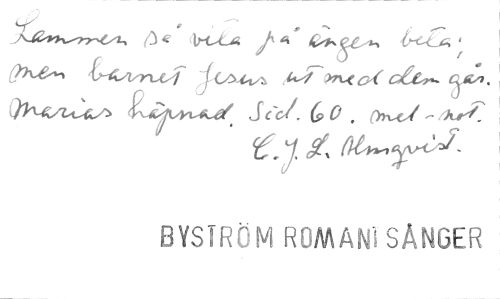 Lammen så vita på ängen beta;
men barnet Jesus ut med dem går.
Marias häpnad. Sid. 60. mel-not.
C. J. L. Almqvist.
BYSTRÖM ROMANI SÅNGER